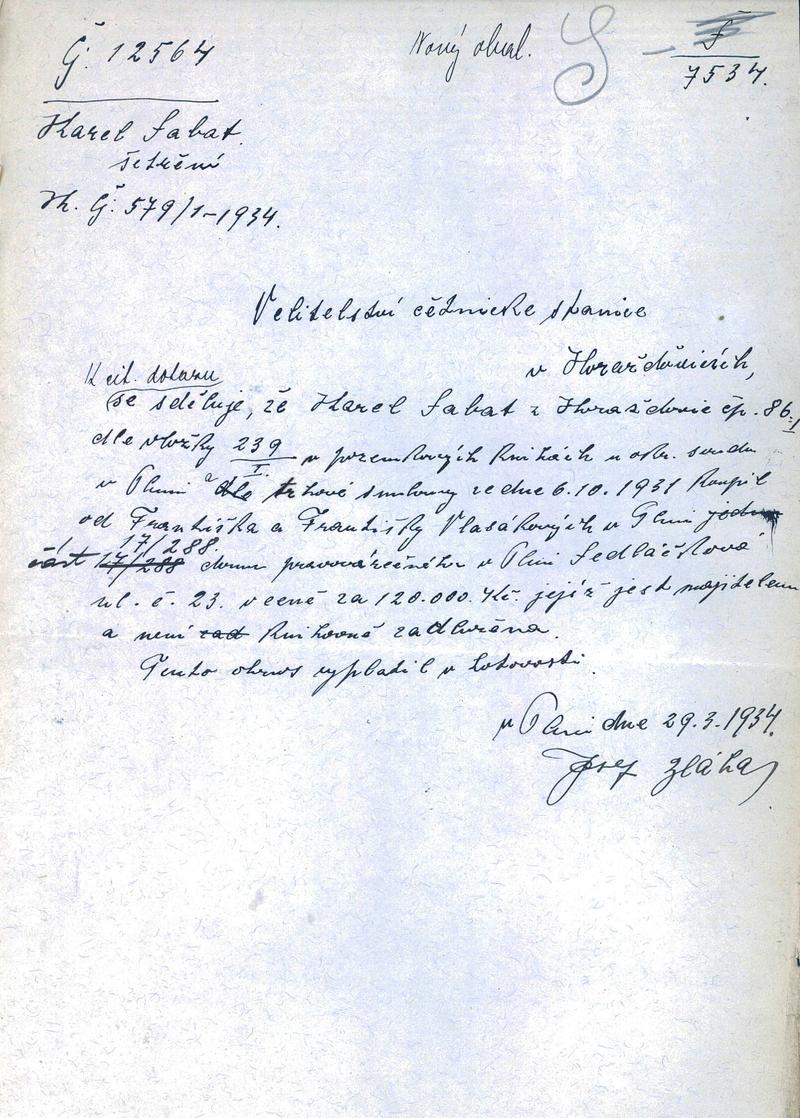 Č: 12564
Nový obal.
S - Š
7534.
Karel Sabat.
šetření
K. Č: 579/1-1934.
Velitelství četnické stanice
v Horažďovicích,
K cit. dotazu
se sděluje, že Karel Sabat z Horažďovic čp. 86-I
dle vložky 239/I. v pozemkových knihách u okr. soudu
v Plzni a dle trhové smlouvy ze dne 6.10.1931 koupil
od Františka a Františky Vlasákových v Plzni jednu
17/288
část 17/288 domu pravovárečného v Plzni Sedláčkova
ul. č. 23. v ceně za 120.000.Kč. jejíž jest majitelem
a není zad knihovně zadlužena.
Tento obnos vyplatil v hotovosti.
v Plzni dne 29.3.1934.
Josef Zláha